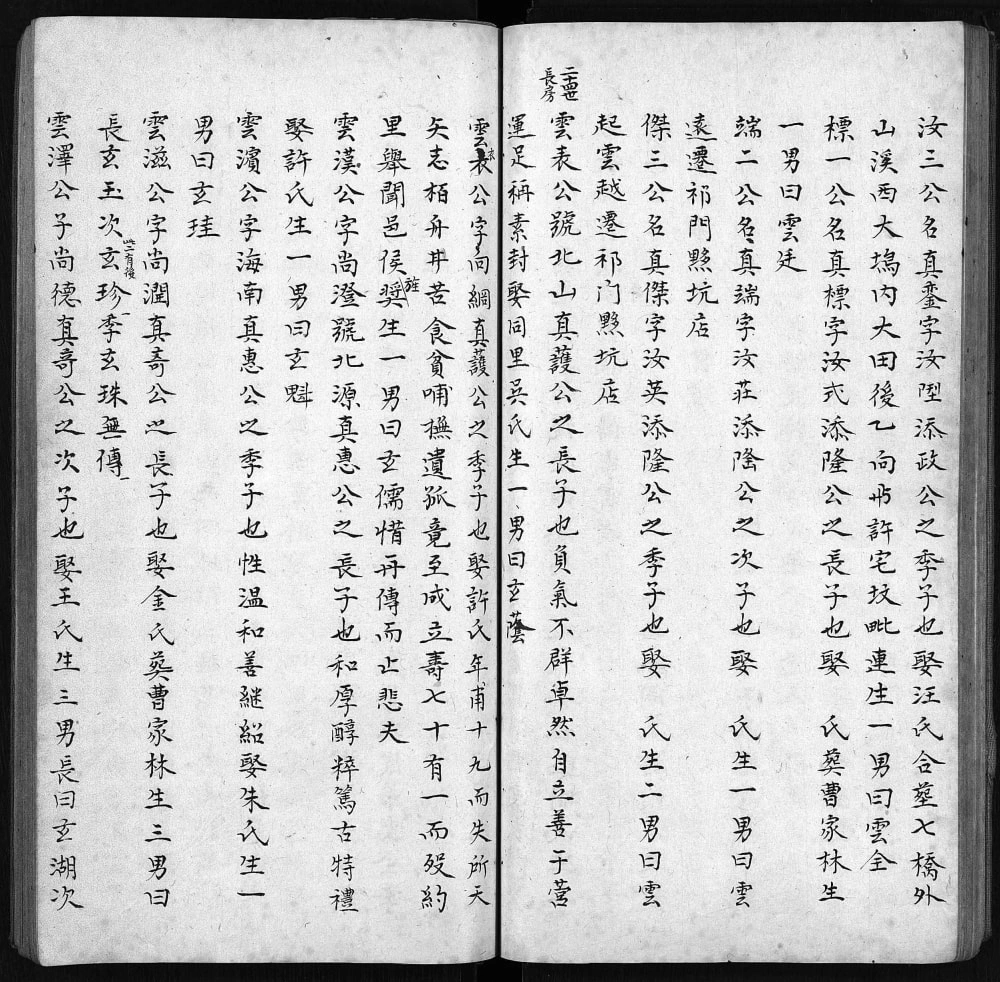 汝三公名真鑾字汝陞添政公之季子也娶汪氏合塟七橋外
山溪西大塢內大田後乙向艿許宅坟毗連生一男曰雲全
標一公名真標字汝式添隆公之長子也娶 氏葵曹家林生
一男曰雲廷
端二公名真端字汝莊添隆公之次子也娶 氏生一男曰雲
遠遷祁門黟坑店
傑三公名真傑字汝英添隆公之季子也娶 氏生二男曰雲
起雲越遷祁门黟坑店
二十四世
長房
雲表公號北山真護公之長子也負氣不群卓然自立善于營
運足稱素封娶同里吳氏生一男曰玄蔭
雲公字尚綱真護公之季子也娶許氏年甫十九而失所天
矢志栢舟井苦食貧哺撫遺孤竟至成立壽七十有一而殁約
里舉聞邑侯奬旌生一男曰玄儒惜再傳而止悲夫
雲漢公字尚澄號北源真惠公之長子也和厚醇粹篤古特禮
娶許氏生一男曰玄魁
雲濵公字海南真惠公之季子也性温和善継紹娶朱氏生一
男曰玄珪
雲滋公字尚潤真竒公之長子也娶金氏葵曹家林生三男曰
長玄玉次玄珍季玄珠無傳
雲澤公子尚德真竒公之次子也娶王氏生三男長曰玄湖次